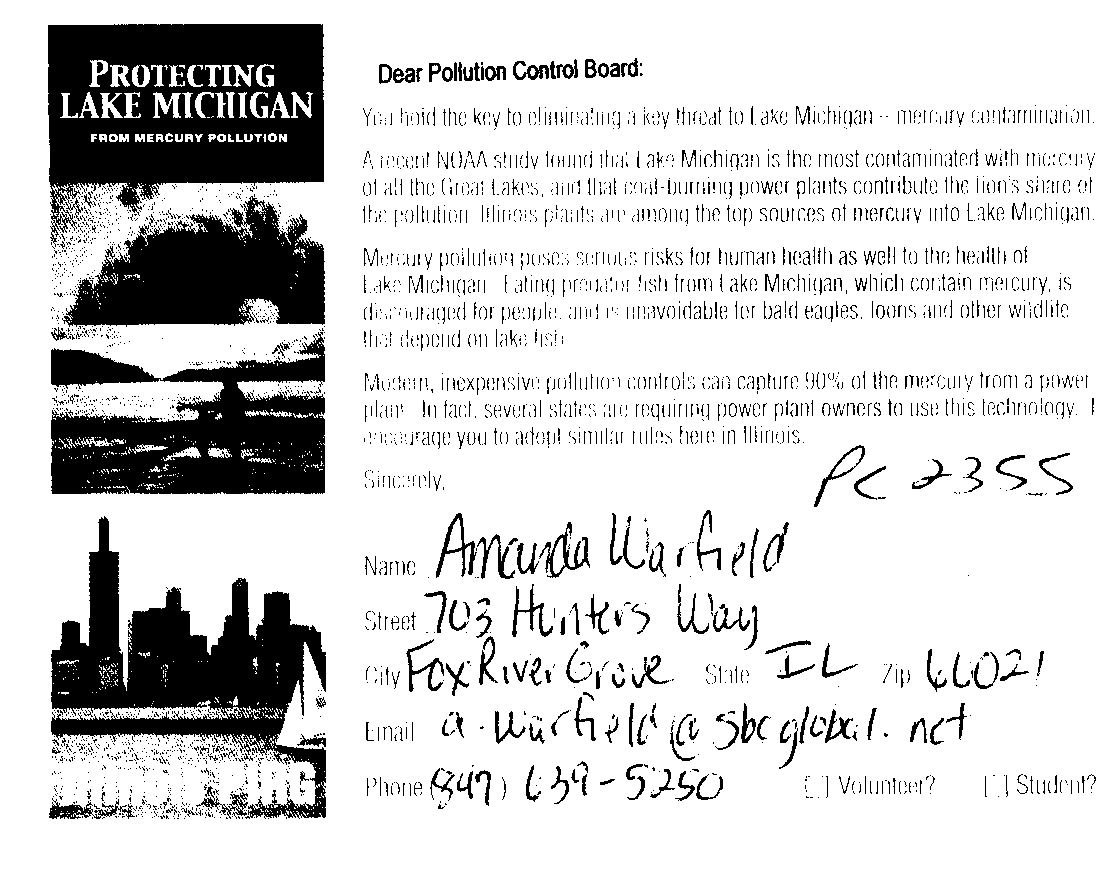 PROTECTING
LAKE MICHIGAN
FROM MERCURY POLLUTION
Dear Pollution Control Board:
You hold the key to eliminating a key threat to Lake Michigan – mercury contamination.
A recent NOAA study found that Lake Michigan is the most contaminated with mercury
of all the Great Lakes, and that coal-burning power plants contribute the lion's share of
the pollution. Illinois plants are among the top sources of mercury into Lake Michigan.
Mercury pollution poses serious risks for human health as well to the health of
Lake Michigan. Eating predator fish from Lake Michigan, which contain mercury, is
discouraged for people, and is unavoidable for bald eagles, loons and other wildlife
that depend on lake fish.
Modern, inexpensive pollution controls can capture 90% of the mercury from a power
plant. In fact, several states are requiring power plant owners to use this technology. I
encourage you to adopt similar rules here in Illinois.
Sincerely,
PC 2355
Name Amanda Warfield
Street 703 Hunters Way
City Fox River Grove State IL Zip 60021
Email a-warfield@sbcglobal.net
Phone (847) 639-5250 [ ] Volunteer? [ ] Student?
Illinois PIRG